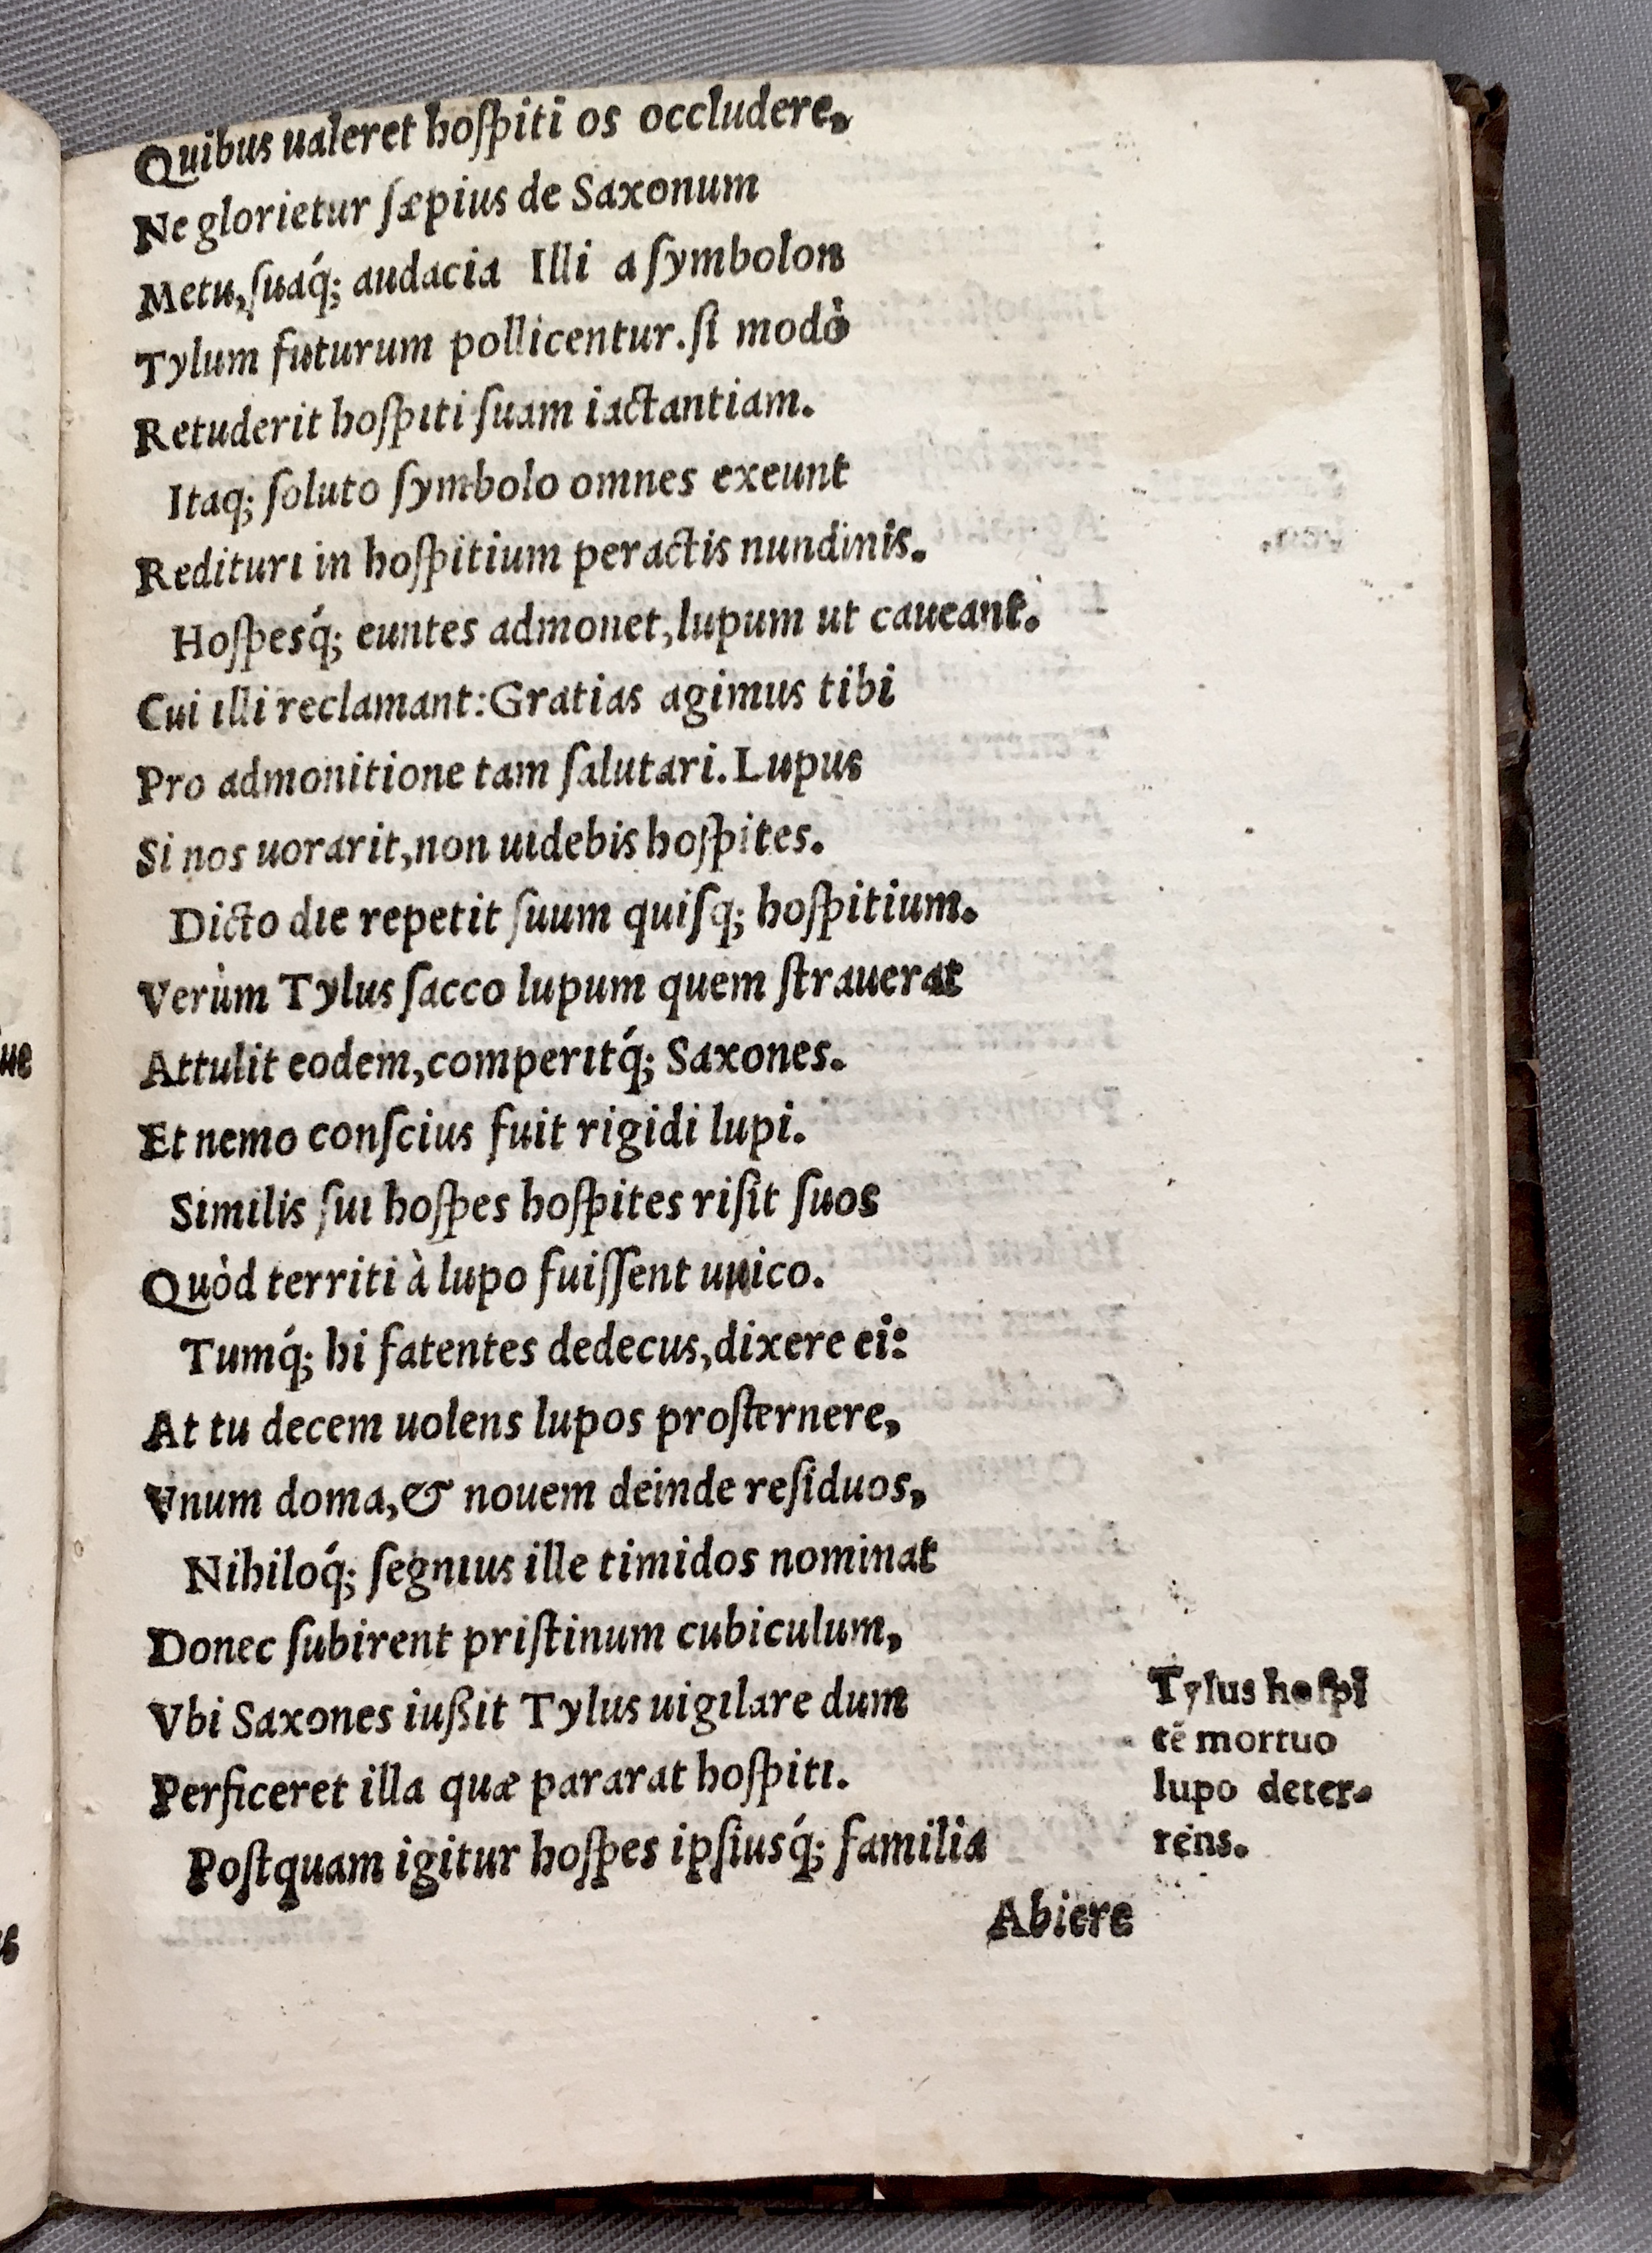 Quibus ualeret hoſpiti os occludere,
Ne glorietur ſæpius de Saxonum
Metu, ſuaq́; audacia Illi a ſymbolon
Tylum futurum pollicentur. ſi modò
Retuderit hoſpiti ſuam iactantiam.
Itaq; ſoluto ſymbolo omnes exeunt
Redituri in hoſpitium peractis nundinis.
Hoſpesq́; euntes admonet, lupum ut caueant.
Cui illi reclamant: Gratias agimus tibi
Pro admonitione tam ſalutari. Lupus
Si nos uorarit, non uidebis hoſpites.
Dicto die repetit ſuum quiſq; hoſpitium.
Verùm Tylus ſacco lupum quem ſtrauerat
Attulit eodem, comperitq́; Saxones.
Et nemo conſcius fuit rigidi lupi.
Similis ſui hoſpes hoſpites riſit ſuos
Quòd territi à lupo fuiſſent unico.
Tumq́; hi fatentes dedecus, dixere ei:
At tu decem uolens lupos proſternere,
Vnum doma, & nouem deinde reſiduos,
Nihiloq́; ſegnius ille timidos nominat
Donec ſubirent priſtinum cubiculum,
Vbi Saxones iußit Tylus uigilare dum
Perficeret illa quæ pararat hoſpiti.
Poſtquam igitur hoſpes ipſiusq́; familia
Abiere
Tylus hoſpi
tẽ mortuo
lupo deter-
rens.
ue